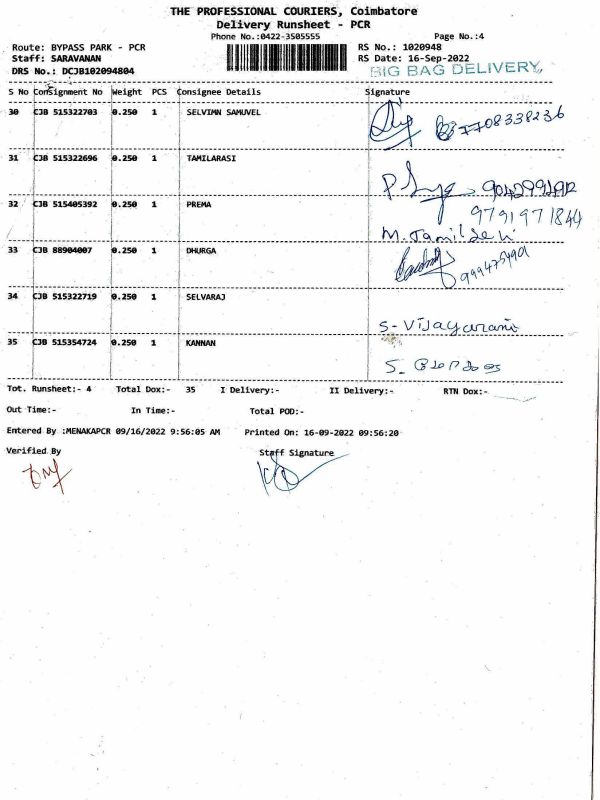 THE PROFESSIONAL COURIERS, Coimbatore
Delivery Runsheet - PCR
Phone No.:0422-3505555 Page No.:4
Route: BYPASS PARK - PCR RS No.: 1020948
Staff: SARAVANAN RS Date: 16-Sep-2022
DRS No.: DCJB102094804 BIG BAG DELIVERY
S No Consignment No Weight PCS Consignee Details Signature
30 CJB 515322703 0.250 1 SELVIMN SAMUVEL
7708338236
31 CJB 515322696 0.250 1 TAMILARASI
32 CJB 515405392 0.250 1 PREMA
9791971844
33 CJB 88904007 0.250 1 DHURGA
34 CJB 515322719 0.250 1 SELVARAJ
35 CJB 515354724 0.250 1 KANNAN
Tot. Runsheet:- 4 Total Dox:- 35 I Delivery:- II Delivery:- RTN Dox:-
Out Time:- In Time:- Total POD:-
Entered By :MENAKAPCR 09/16/2022 9:56:05 AM Printed On: 16-09-2022 09:56:20
Verified By Staff Signature